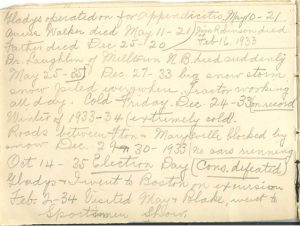 Gladys operated on for Appendicitis, May 10-21
Annie Walker died May 11-21
Father died Dec. 25-20
Robinson died
Feb 16, 1933
Dr. Laughlin of Milltown N.B. died suddenly
May 25-35 Dec. 27-33 big snow storm
snow piled everywhere Tractor working
all day. Cold Friday. Dec. 24-33 on record
Winter of 1933-34 (extremely cold.
Roads between & Marysville blocked by
snow Dec. 29 30-1933 no cars running
Oct 14-35 Election Day (Cons. defeated)
Gladys & I went to Boston on excursion
Feb. 2-34 Visited May & Blake, went to
Sportsmen Show.